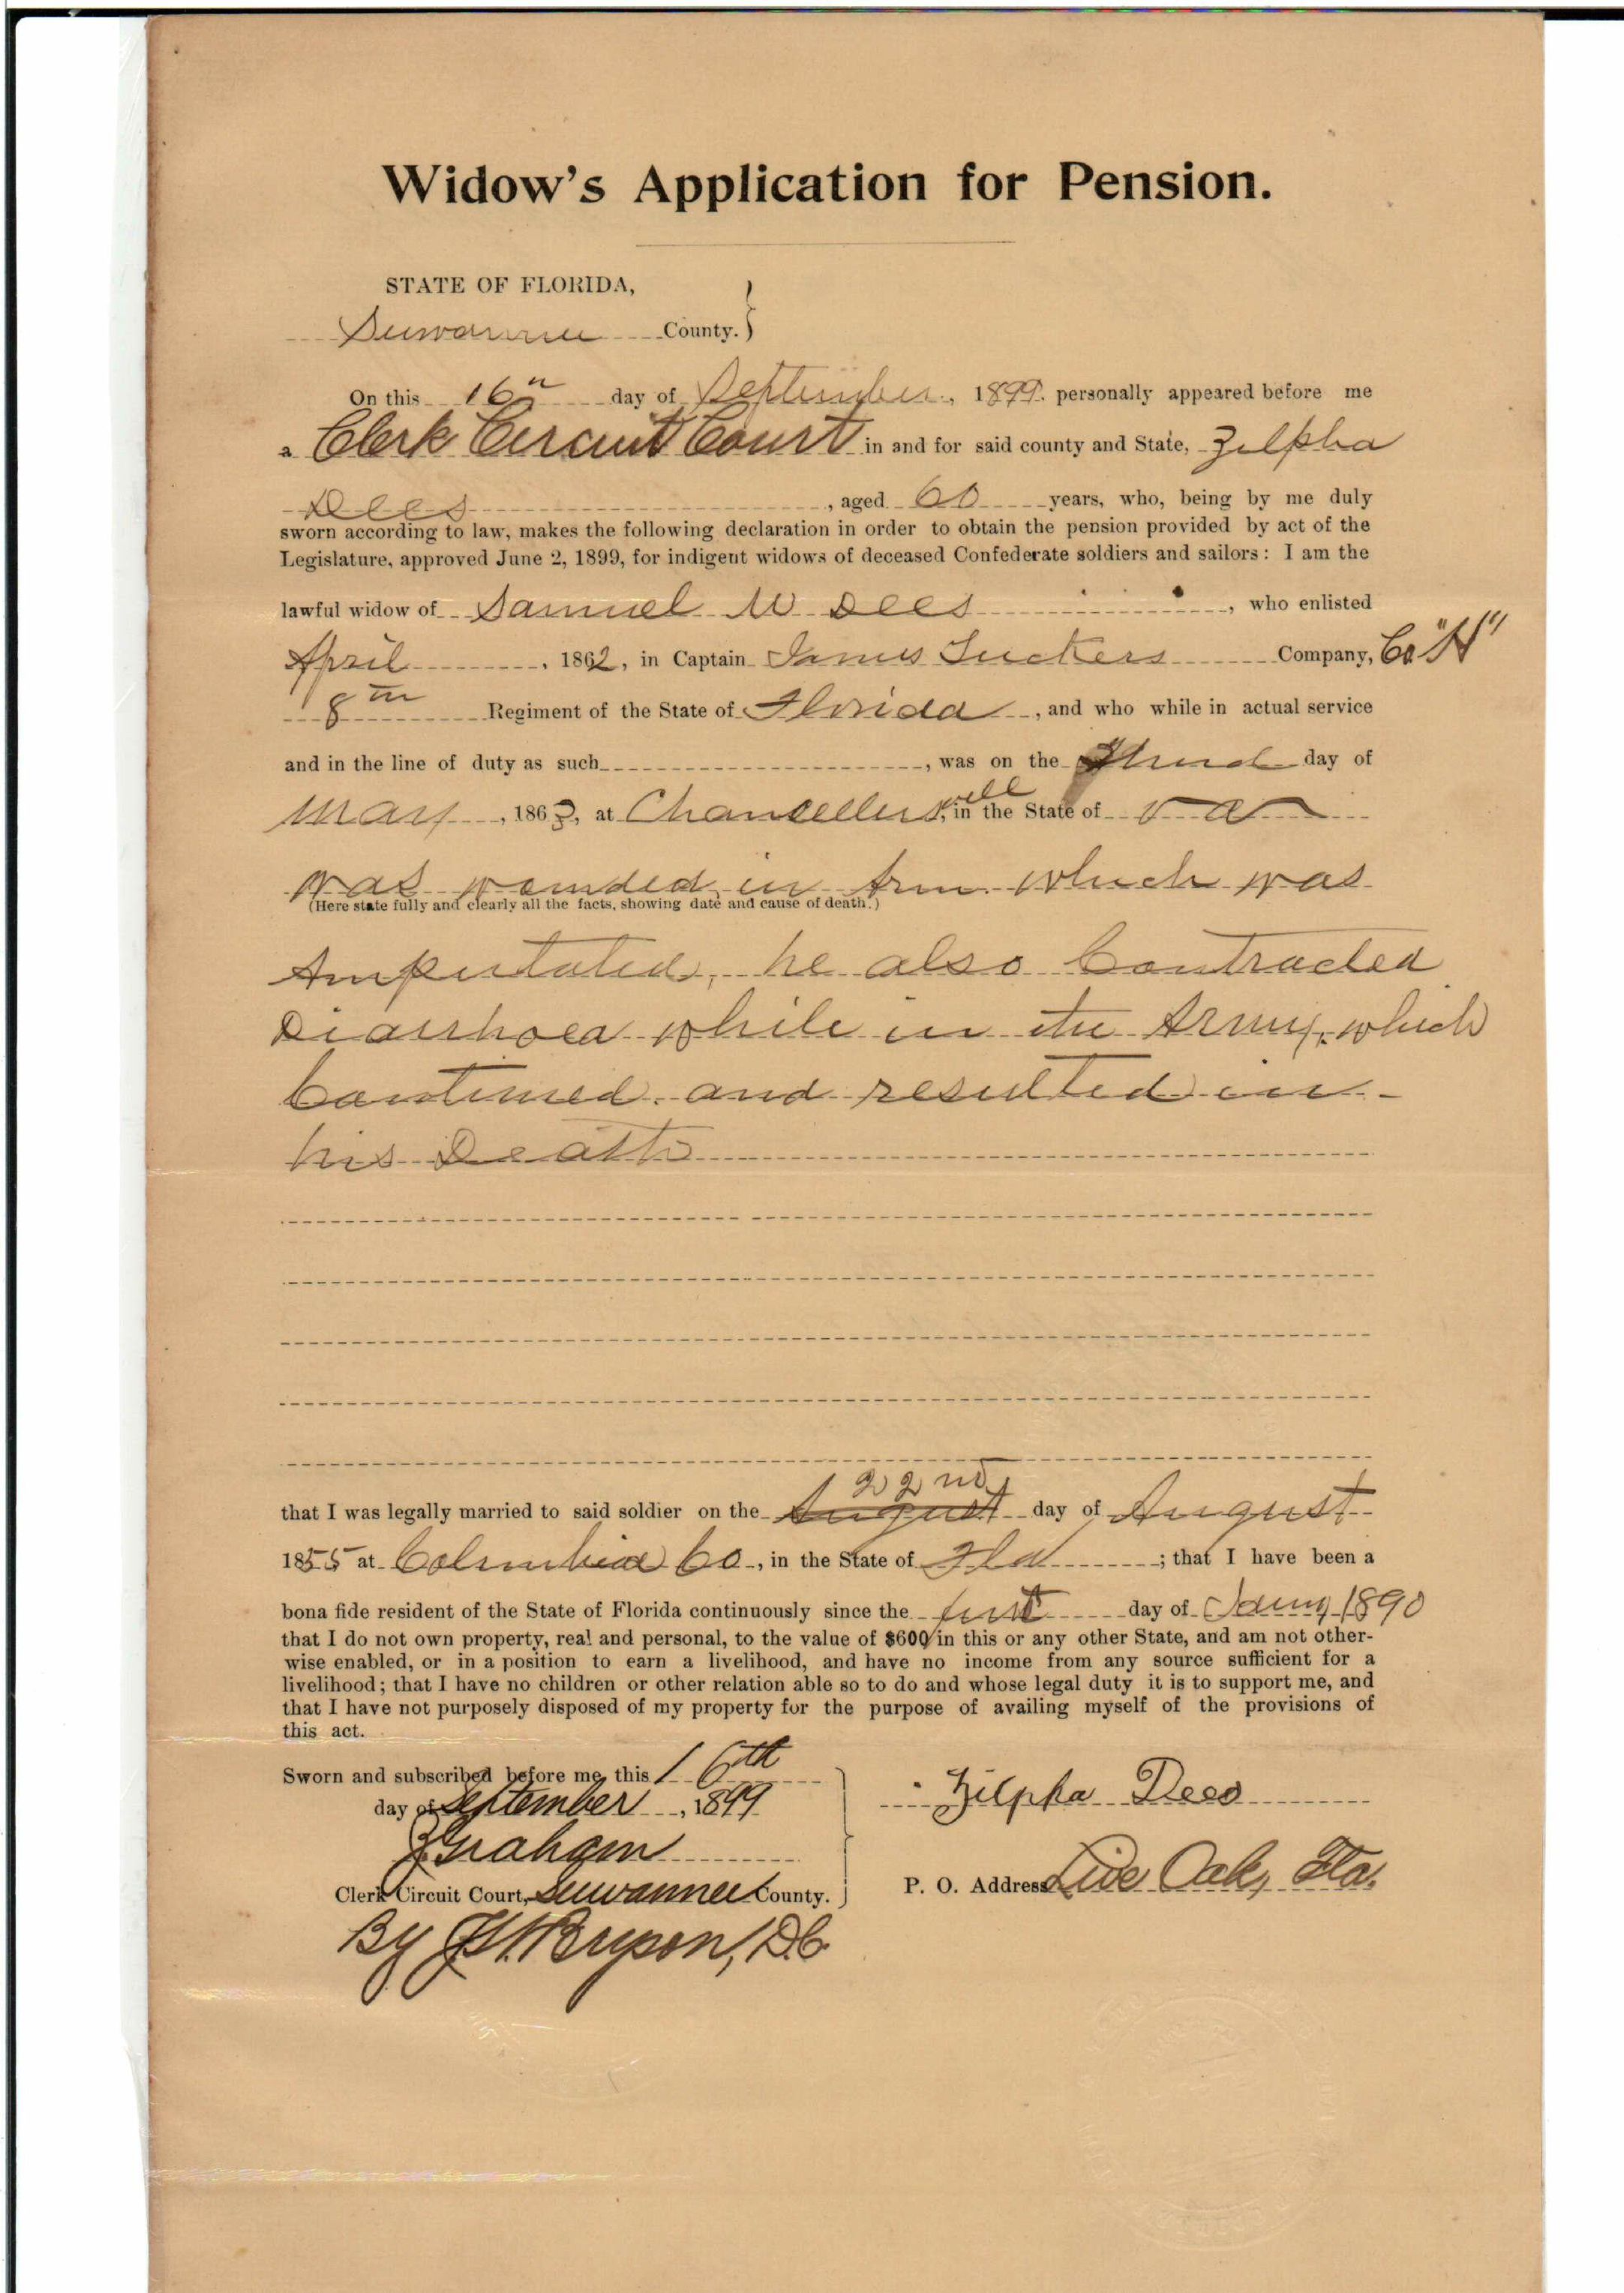 Widow's Application for Pension.
STATE OF FLORIDA,
Suwannee County.
On this 16th day of September, 1899. personally appeared before me
a Clerk Circuit Court in and for said county and State, Zilpha
Dees, aged 60 years, who, being by me duly
sworn according to law, makes the following declaration in order to obtain the pension provided by act of the
Legislature, approved June 2, 1899, for indigent widows of deceased Confederate soldiers and sailors: I am the
lawful widow of Samuel W Dees, who enlisted
April, 1862, in Captain James Tuckers Company, Co "H"
8th Regiment of the State of Florida, and who while in actual service
and in the line of duty as such, was on the Third day of
May, 1863, at Chancellersvill, in the State of Va
was wounded in Arm which was
(Here state fully and clearly all the facts, showing date and cause of death.)
Amputated, he also Contracted
Diarrhoea while in the Army, which
Continued and resulted in
his Death
22nd
that I was legally married to said soldier on the August day of August
1855 at Columbia Co, in the State of Fla; that I have been a
bona fide resident of the State of Florida continuously since the first day of Jany 1890
that I do not own property, real and personal, to the value of $600 in this or any other State, and am not other-
wise enabled, or in a position to earn a livelihood, and have no income from any source sufficient for a
livelihood; that I have no children or other relation able so to do and whose legal duty it is to support me, and
that I have not purposely disposed of my property for the purpose of availing myself of the provisions of
this act.
Sworn and subscribed before me, this 16th
day of September, 1899
Graham
Clerk Circuit Court, Suwannee County.
By Bryson, D.C.
Zilpha Dees
P. O. Address Live Oak, Fla.